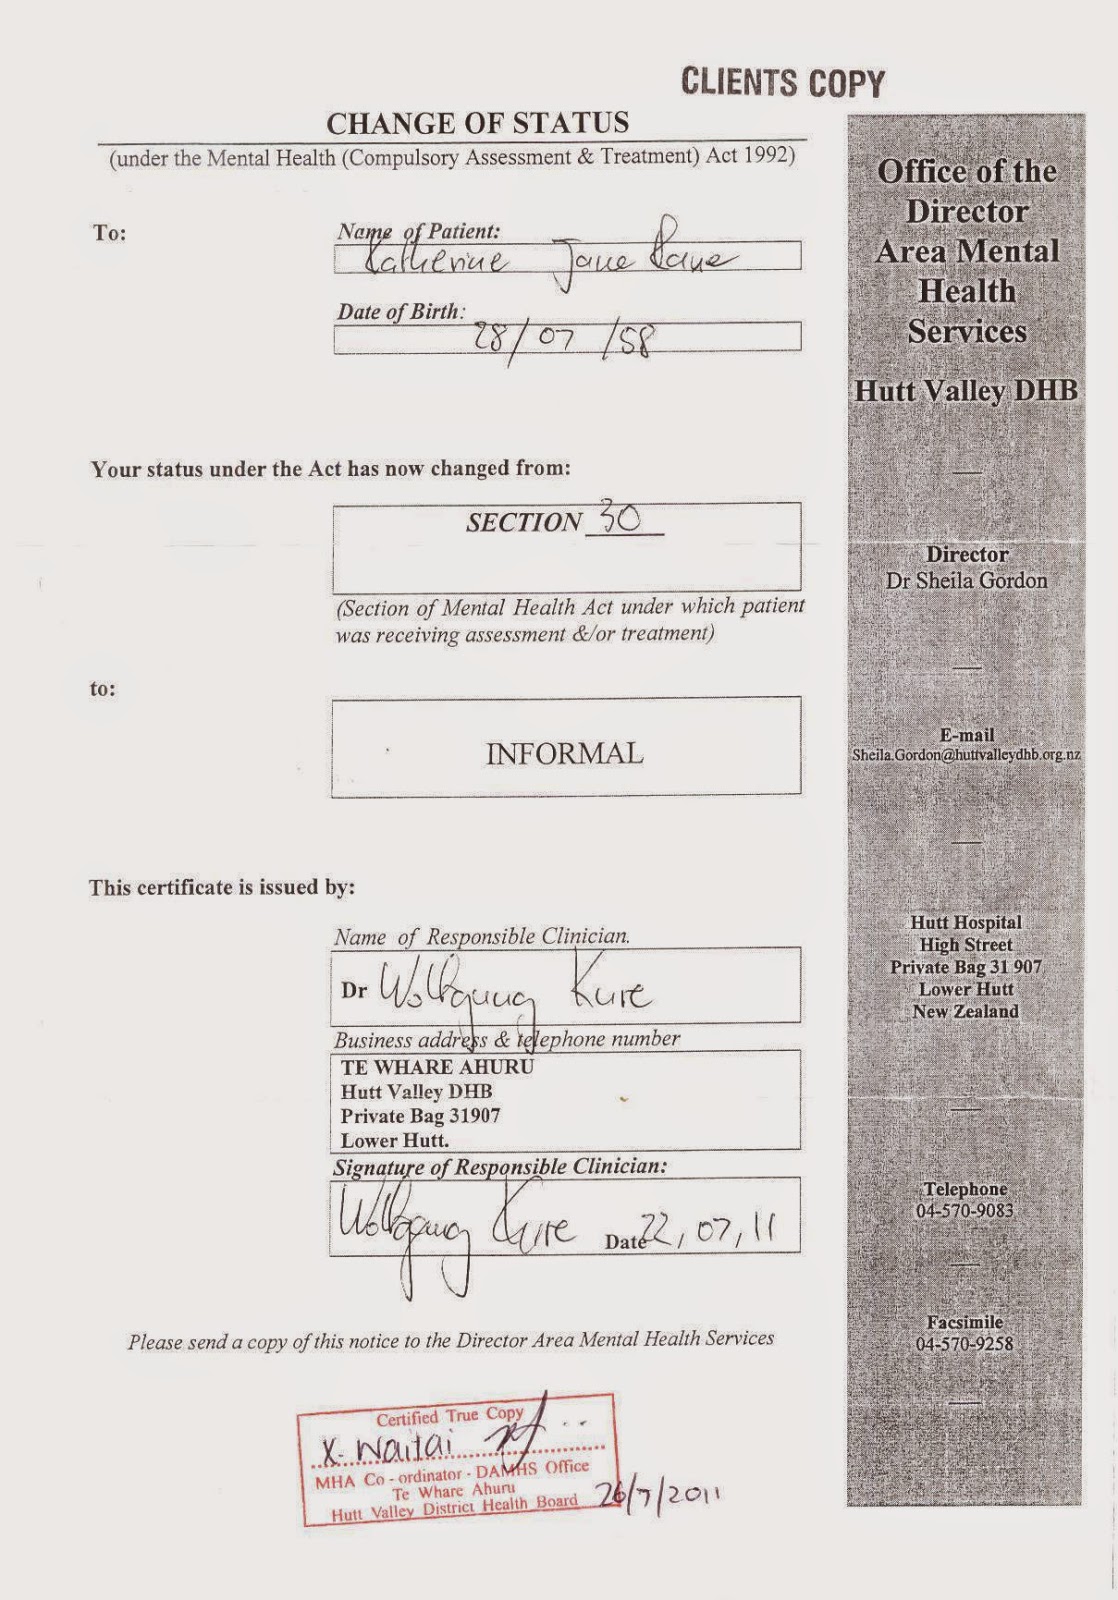 CLIENTS COPY
CHANGE OF STATUS
(under the Mental Health (Compulsory Assessment & Treatment) Act 1992)
To:
Name of Patient:
Katherine Jane Raue
Date of Birth:
28/07/58
Your status under the Act has now changed from:
SECTION 30
(Section of Mental Health Act under which patient
was receiving assessment &/or treatment)
to:
INFORMAL
This certificate is issued by:
Name of Responsible Clinician.
Dr Wolfgang Kure
Business address & telephone number
TE WHARE AHURU
Hutt Valley DHB
Private Bag 31907
Lower Hutt.
Signature of Responsible Clinician:
Wolfgang Kure Date 22, 07, 11
Please send a copy of this notice to the Director Area Mental Health Services
Certified True Copy
X. Waitai
MHA Co-ordinator - DAMHS Office
Te Whare Ahuru
Hutt Valley District Health Board 26/7/2011
Office of the
Director
Area Mental
Health
Services
Hutt Valley DHB
Director
Dr Sheila Gordon
E-mail
Sheila.Gordon@huttvalleydhb.org.nz
Hutt Hospital
High Street
Private Bag 31 907
Lower Hutt
New Zealand
Telephone
04-570-9083
Facsimile
04-570-9258